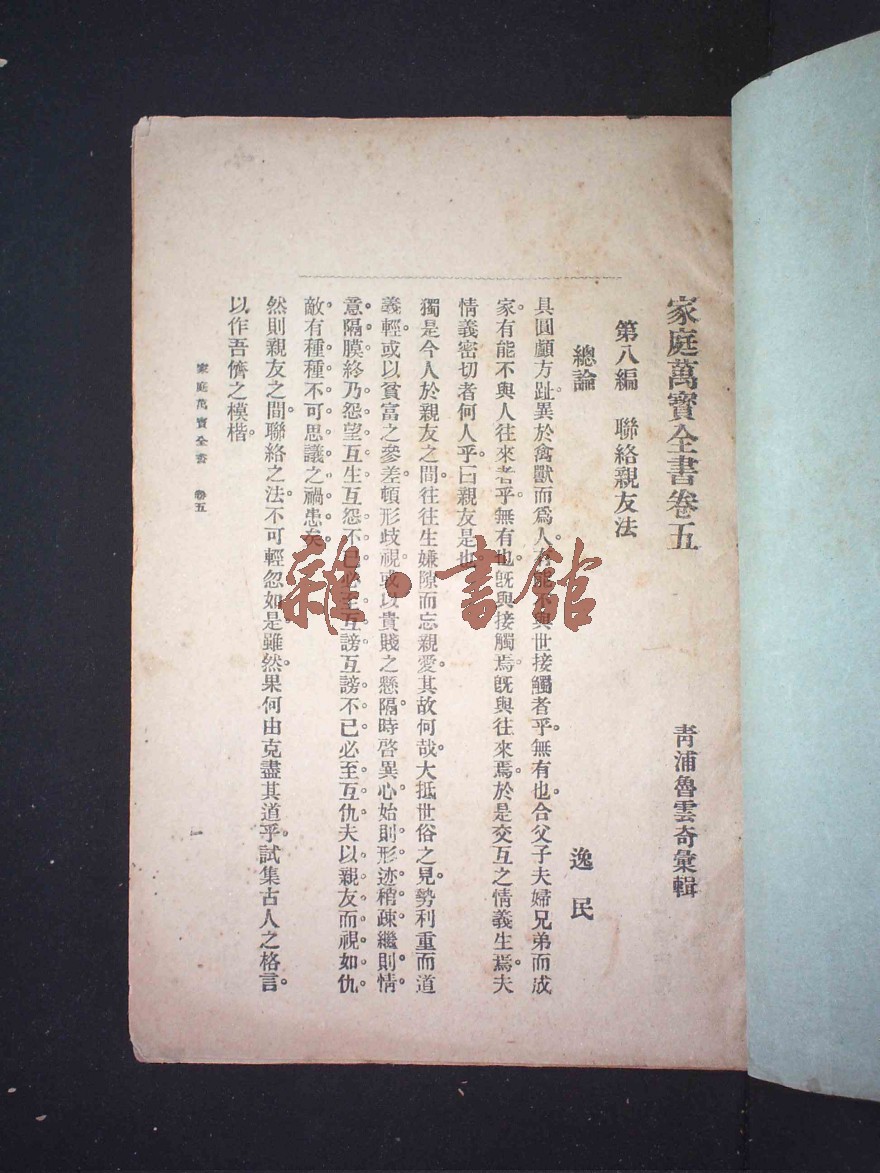 家庭萬寶全書卷五
青浦魯雲奇彙輯
第八編　聯絡親友法
總論
逸民
具圓顱方趾異於禽獸而爲人有能不與世接觸者乎無有也合父子夫婦兄弟而成
家有能不與人往來者乎無有也旣與接觸焉旣與往來焉於是交互之情義生焉夫
情義密切者何人乎曰親友是也
獨是今人於親友之間往往生嫌隙而忘親愛其故何哉大抵世俗之見勢利重而道
義輕或以貧富之參差頓形歧視或以貴賤之懸隔時啓異心始則形迹稍疎繼則情
意隔膜終乃怨望互生互怨不已必至互謗互謗不已必至互仇夫以親友而視如仇
敵有種種不可思議之禍患矣
然則親友之間聯絡之法不可輕忽如是雖然果何由克盡其道乎試集古人之格言
以作吾儕之模楷
家庭萬寶全書　卷五
一
雜·書館